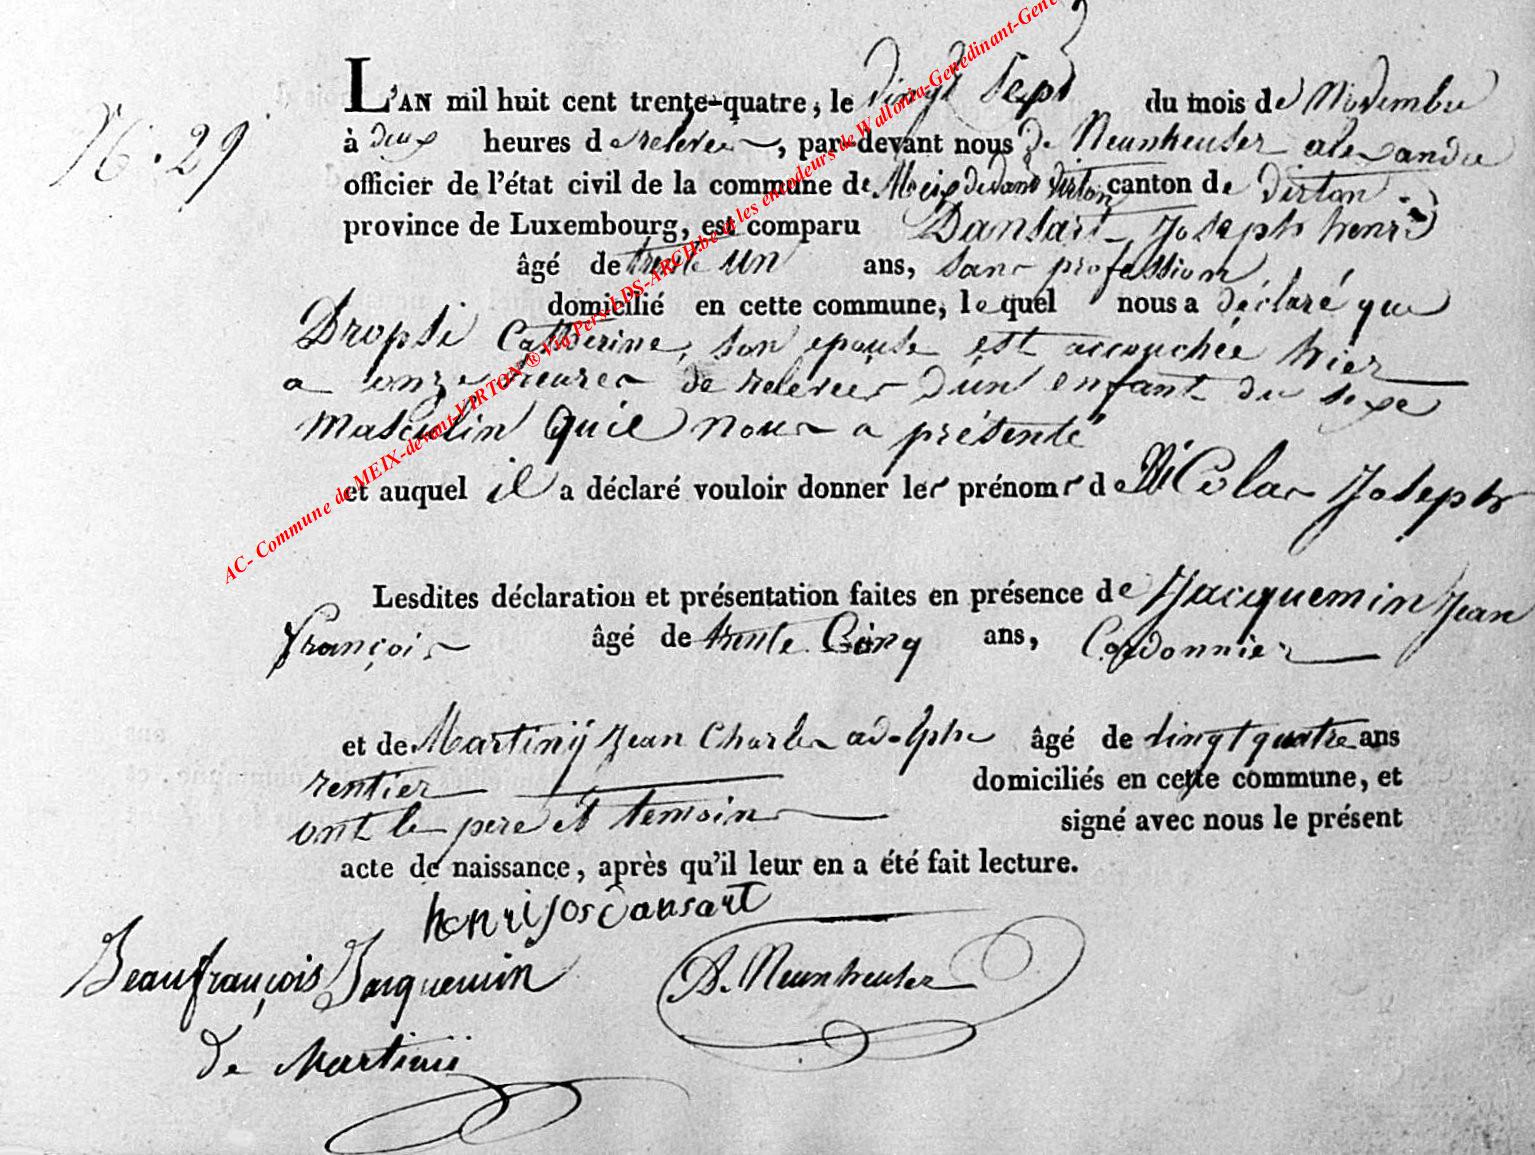 N°. 29
L'AN mil huit cent trente-quatre, le vingt sept du mois de Novembre
à deux heures de relevée, par-devant nous de Neunheuser alexandre
officier de l'état civil de la commune de Meix devant virton canton de virton.
province de Luxembourg, est comparu Dansart, Joseph henri
âgé de trente un ans, sans profession
domicilié en cette commune, lequel nous a déclaré que
Dropsi Catherine, son epouse est accouchée hier
a onze heures de relevée d'un enfant du sexe
masculin qu'il nous a présenté
et auquel il a déclaré vouloir donner les prénoms de Nicolas Joseph
Lesdites déclaration et présentation faites en présence de Jacquemin Jean
françois âgé de trente Cinq ans, Cordonnier
et de Martinÿ Jean Charles adolphe âgé de vingt quatre ans
rentier domiciliés en cette commune, et
ont le pere et temoins signé avec nous le présent
acte de naissance, après qu'il leur en a été fait lecture.
henri jos dansart
Jeanfrançois Jacquemin
A. Neunheuser
De Martinÿ
AC- Commune de MEIX-devant-VIRTON ® Via Pers-LDS-ARCH.be et les encodeurs de Wallonia-Genedinant-Gene